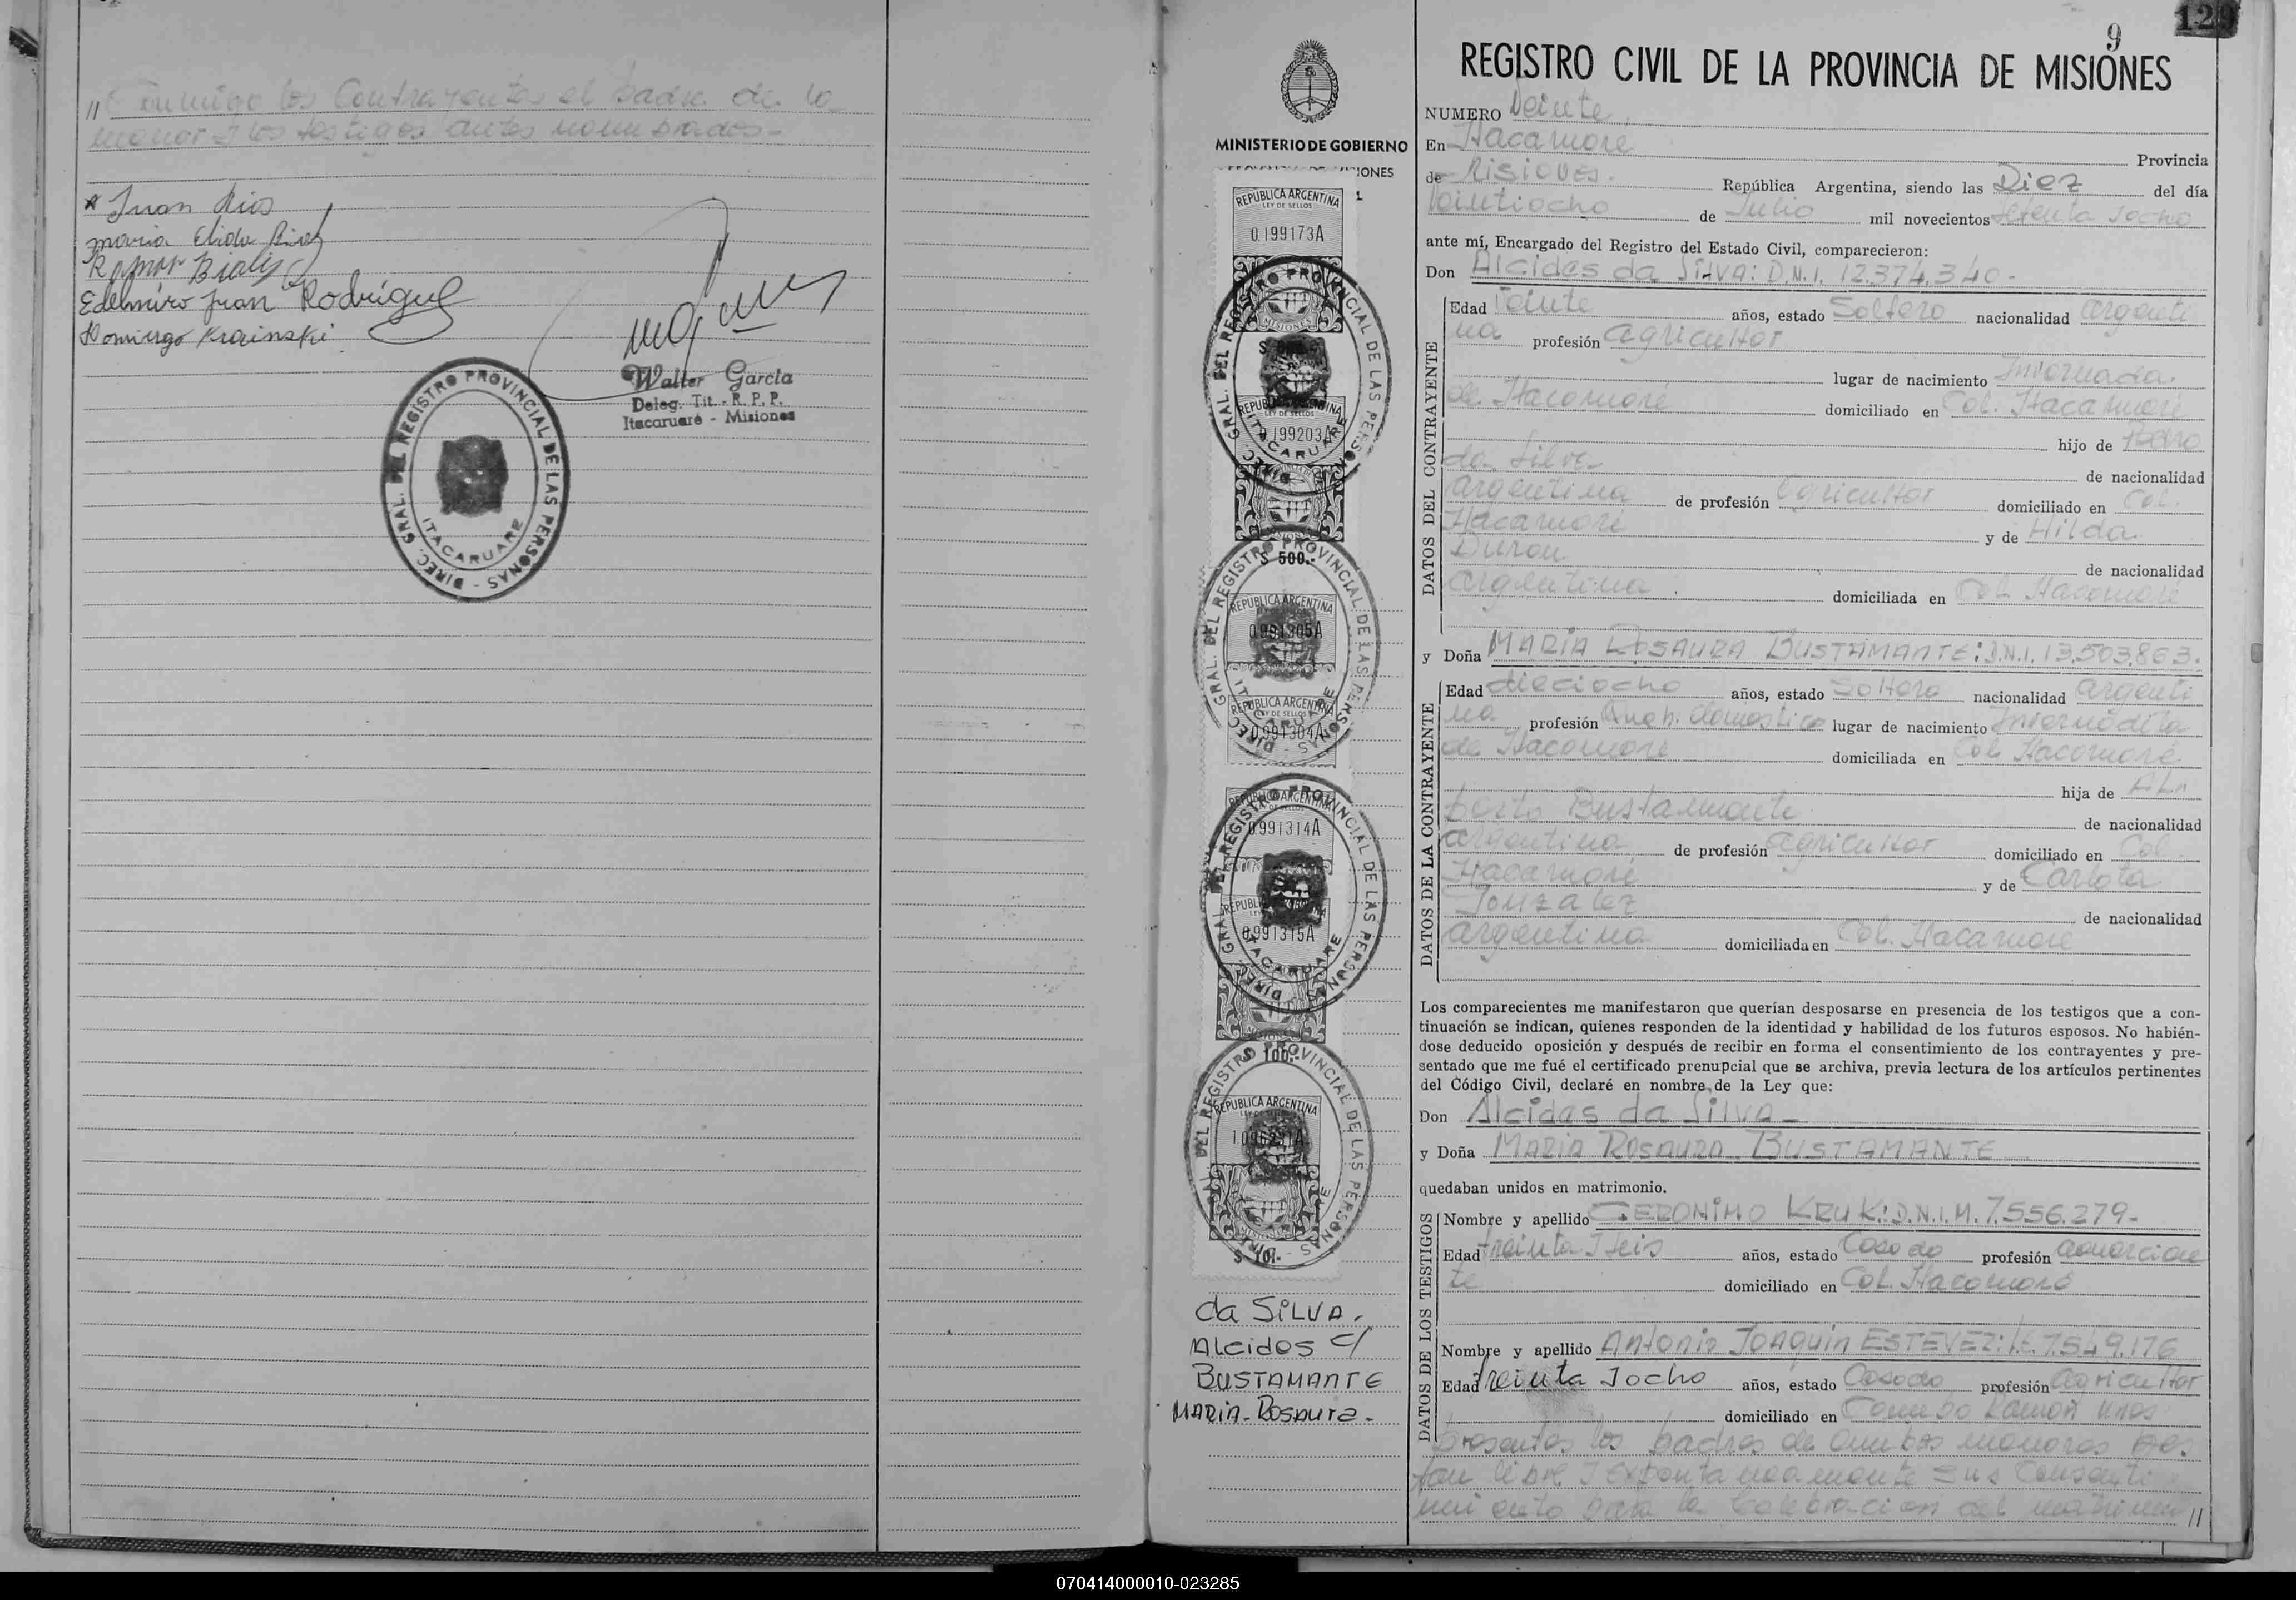 // Conmigo los Contrayentes el padre de la
menor y los testigos antes nombrados-
Juan Rios
maria Elida Rios
Ramon
Edelmiro Juan Rodriguez
Domingo Krainski
Walter Garcia
Deleg. Tit. - R. P. P.
Itacaruaré - Misiones
DIREC. GRAL. DEL REGISTRO PROVINCIAL DE LAS PERSONAS -
ITACARUARE
MINISTERIO DE GOBIERNO
REPUBLICA ARGENTINA
LEY DE SELLOS
0199173A
MISIONES
199203A
$ 500.-
REPUBLICA ARGENTINA
0991305A
REPUBLICA ARGENTINA
LEY DE SELLOS
0991304A
0991314A
0991315A
$ 100.-
REPUBLICA ARGENTINA
$ 10.-
da SILVA.
ALcides c/
BUSTAMANTE
MARIA-Rosaura-
129
9
REGISTRO CIVIL DE LA PROVINCIA DE MISIONES
NUMERO Veinte,
En Itacaruaré Provincia
de Misiones. República Argentina, siendo las Diez del día
Veintiocho de Julio mil novecientos setenta y ocho
ante mí, Encargado del Registro del Estado Civil, comparecieron:
Don Alcides da SILVA: D.N.I. 12.374.340-
DATOS DEL CONTRAYENTE
Edad Veinte años, estado Soltero nacionalidad argenti
na profesión agricultor
lugar de nacimiento Invernada
de Itacaruaré domiciliado en Col. Itacaruaré
hijo de Pedro
da Silva de nacionalidad
argentina de profesión agricultor domiciliado en Col.
Itacaruaré y de Hilda
Duran de nacionalidad
argentina domiciliada en Col. Itacaruaré
y Doña MARIA ROSAURA BUSTAMANTE: D.N.I. 13.503.863.
DATOS DE LA CONTRAYENTE
Edad dieciocho años, estado Soltera nacionalidad argenti
na profesión Queh. domestico lugar de nacimiento Invernadita
de Itacaruaré domiciliada en Col. Itacaruaré
hija de Al
berto Bustamante de nacionalidad
argentina de profesión agricultor domiciliado en Col.
Itacaruaré y de Carlota
Gonzalez de nacionalidad
argentina domiciliada en Col. Itacaruaré
Los comparecientes me manifestaron que querían desposarse en presencia de los testigos que a con-
tinuación se indican, quienes responden de la identidad y habilidad de los futuros esposos. No habién-
dose deducido oposición y después de recibir en forma el consentimiento de los contrayentes y pre-
sentado que me fué el certificado prenupcial que se archiva, previa lectura de los artículos pertinentes
del Código Civil, declaré en nombre de la Ley que:
Don Alcides da SILVA-
y Doña MARIA ROSAURA BUSTAMANTE
quedaban unidos en matrimonio.
DATOS DE LOS TESTIGOS
Nombre y apellido GERONIMO KRUK: D.N.I.M. 7.556.279-
Edad treinta y seis años, estado Casado profesión comercian
te domiciliado en Col. Itacaruaré
Nombre y apellido Antonio JOAQUIN ESTEVEZ: L.E. 7.549.176
Edad treinta y ocho años, estado Casado profesión agricultor
domiciliado en Campo Ramon
presentes los padres de ambos menores
tan libre y expontaneamente sus consenti
miento para la Celebracion del matrimonio //
070414000010-023285